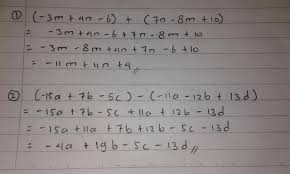 ① (-3m + 4n - 6) + (7n - 8m + 10)
= -3m + 4n - 6 + 7n - 8m + 10
= -3m - 8m + 4n + 7n - 6 + 10
= -11m + 11n + 4 //
② (-15a + 7b - 5c) - (-11a - 12b + 13d)
= -15a + 7b - 5c + 11a + 12b - 13d
= -15a + 11a + 7b + 12b - 5c - 13d
= -4a + 19b - 5c - 13d //